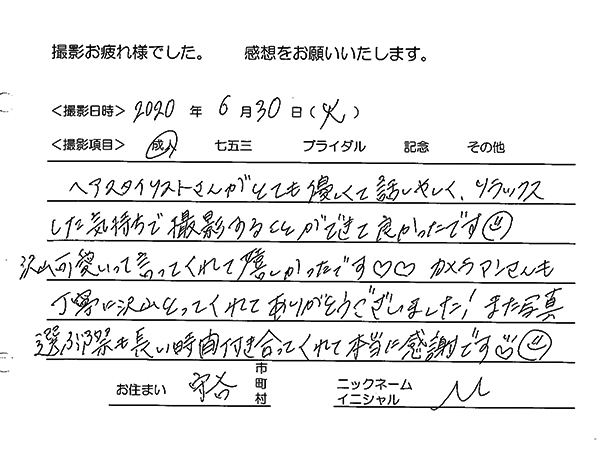 撮影お疲れ様でした。 感想をお願いいたします。
<撮影日時> 2020 年 6 月 30 日 (火)
<撮影項目> 成人 七五三 ブライダル 記念 その他
ヘアスタイリストさんがとても優しくて話しやしく、リラックス
した気持ちで撮影することができて良かったです
沢山可愛いって言ってくれて嬉しかったです♡♡ カメラマンさんも
丁寧に沢山とってくれてありがとうございました! また写真
選ぶ際も長い時間付き合ってくれて本当に感謝です
お住まい 守谷 市町村 ニックネーム イニシャル M